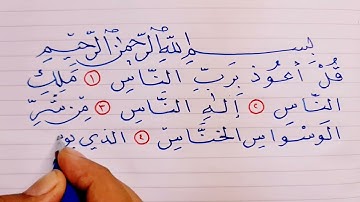 بسم اللهِ الرَّحْمٰنِ الرَّحِيْمِ
قُلْ أَعُوْذُ بِرَبِّ النَّاسِ ١ مَلِكِ
النَّاسِ ٢ إِلٰهِ النَّاسِ ٣ مِنْ شَرِّ
الْوَسْوَاسِ الْخَنَّاسِ ٤ الذي يو